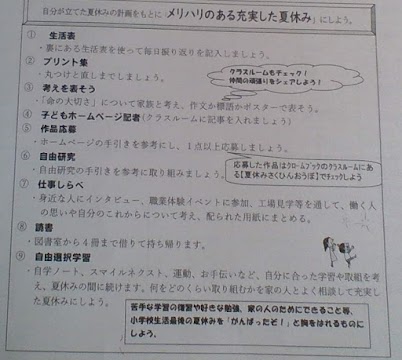 自分が立てた夏休みの計画をもとに「メリハリのある充実した夏休み」にしよう。
① 生活表
・裏にある生活表を使って毎日振り返りを記入しましょう。
② プリント集
・丸つけと直しまでしましょう。
クラスルームもチェック!
仲間の頑張りをシェアしよう!
③ 考えを表そう
・「命の大切さ」について家族と考え、作文か標語かポスターで表そう。
④ 子どもホームページ記者(クラスルームに記事を入れましょう)
⑤ 作品応募
・ホームページの手引きを参考にし、1点以上応募しましょう。
⑥ 自由研究
・自由研究の手引きを参考に取り組みましょう。
応募した作品はクロームブックのクラスルームにあ
る【夏休みさくひんおうぼ】でチェックしよう
⑦ 仕事しらべ
・身近な人にインタビュー、職業体験イベントに参加、工場見学等を通して、働く人
の思いや自分のこれからについて考え、配られた用紙にまとめる。
⑧ 読書
・図書室から4冊まで借りて持ち帰ります。
⑨ 自由選択学習
・自学ノート、スマイルネクスト、運動、お手伝いなど、自分に合った学習や取組を考
え、夏休みの間に続けます。何をどのくらい取り組むかを家の人とよく相談して充実し
た夏休みにしましょう。
苦手な学習の復習や好きな勉強、家の人のためにできること等、
小学校生活最後の夏休みを「がんばったぞ!」と胸をはれるものに
しよう。